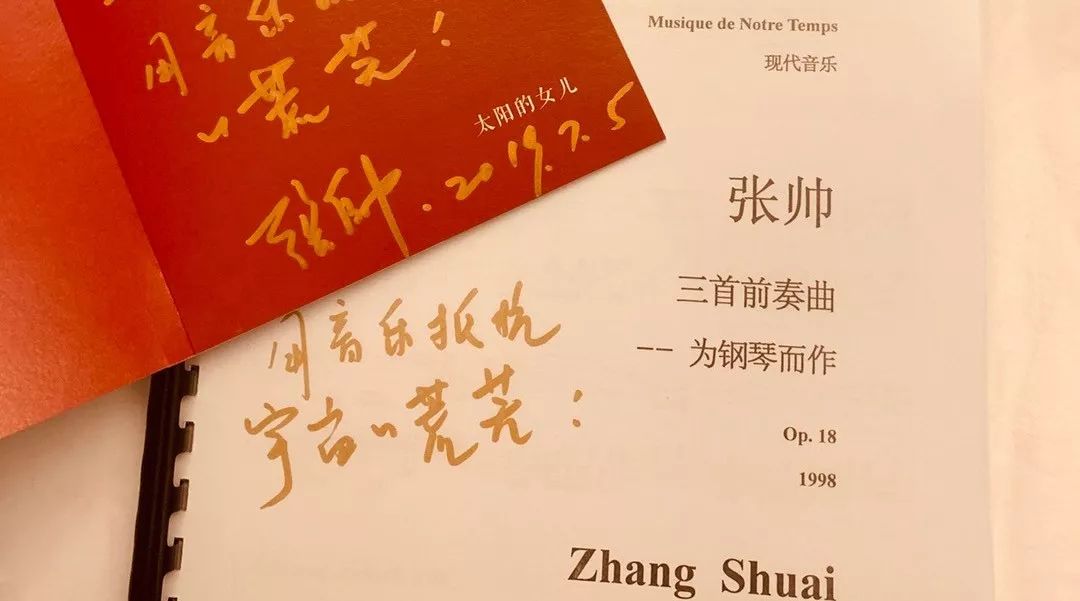 用音乐
的荒芜!
太阳的女儿
张帅.2019.7.5
Musique de Notre Temps
现代音乐
张帅
三首前奏曲
-- 为钢琴而作
Op. 18
1998
用音乐抵抗
宇宙的荒芜!
Zhang Shuai